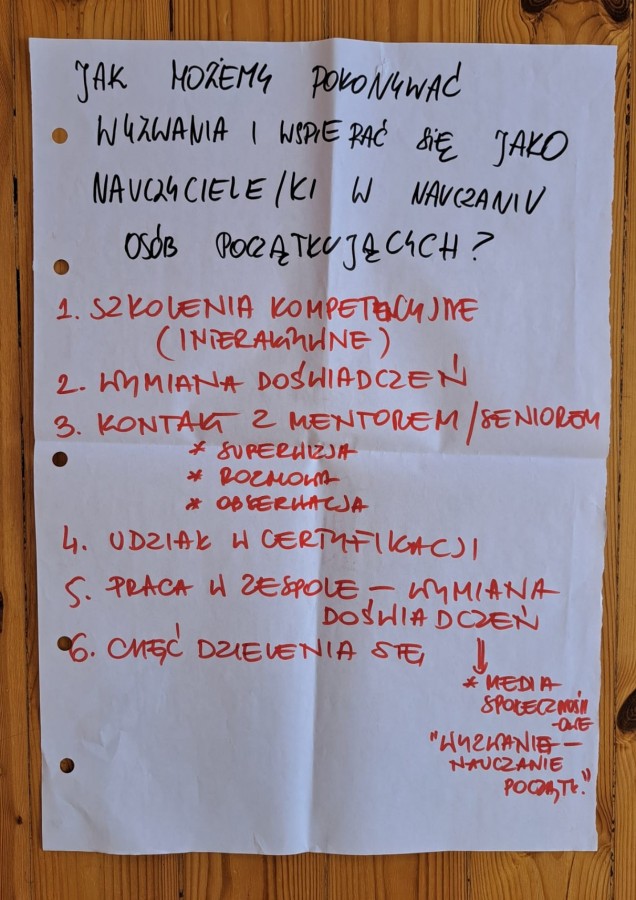 JAK MOŻEMY POKONYWAĆ
WYZWANIA I WSPIERAĆ SIĘ JAKO
NAUCZYCIELE/KI W NAUCZANIU
OSÓB POCZĄTKUJĄCYCH?
1. SZKOLENIA KOMPETENCYJNE
(INTERAKTYWNE)
2. WYMIANA DOŚWIADCZEŃ
3. KONTAKT Z MENTOREM/SENIOREM
* SUPERWIZJA
* ROZMOWA
* OBSERWACJA
4. UDZIAŁ W CERTYFIKACJI
5. PRACA W ZESPOLE – WYMIANA
DOŚWIADCZEŃ
6. CHĘĆ DZIELENIA SIĘ
* MEDIA
SPOŁECZNOŚCI
-OWE
"WYZWANIE –
NAUCZANIE
POCZĄTK."